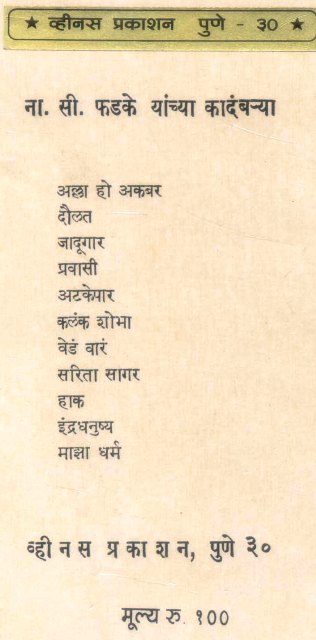 ★ व्हीनस प्रकाशन पुणे - ३० ★
ना. सी. फडके यांच्या कादंबऱ्या
अल्ला हो अकबर
दौलत
जादूगार
प्रवासी
अटकेपार
कलंक शोभा
वेडं वारं
सरिता सागर
हाक
इंद्रधनुष्य
माझा धर्म
व्हीनस प्रकाशन, पुणे ३०
मूल्य रु. १००